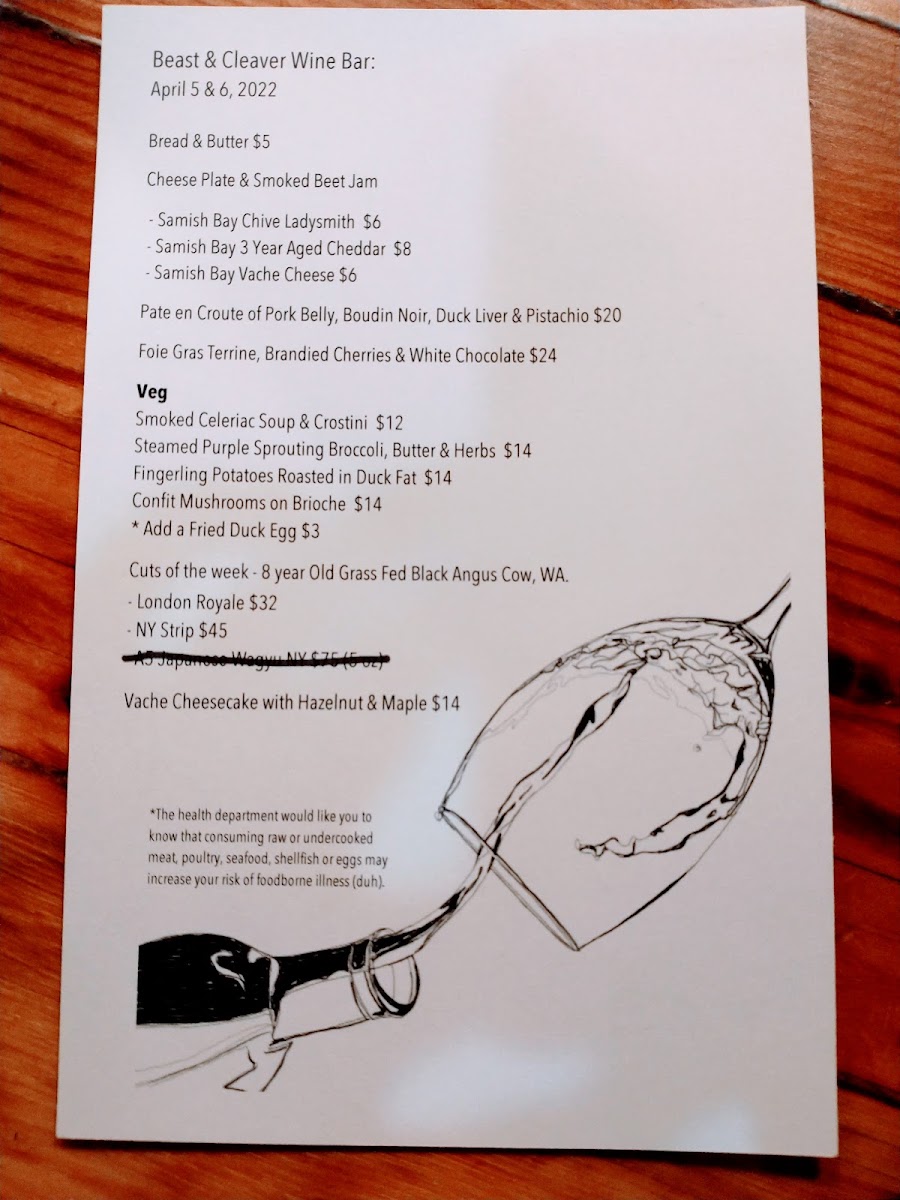 Beast & Cleaver Wine Bar:
April 5 & 6, 2022
Bread & Butter $5
Cheese Plate & Smoked Beet Jam
- Samish Bay Chive Ladysmith $6
- Samish Bay 3 Year Aged Cheddar $8
- Samish Bay Vache Cheese $6
Pate en Croute of Pork Belly, Boudin Noir, Duck Liver & Pistachio $20
Foie Gras Terrine, Brandied Cherries & White Chocolate $24
Veg
Smoked Celeriac Soup & Crostini $12
Steamed Purple Sprouting Broccoli, Butter & Herbs $14
Fingerling Potatoes Roasted in Duck Fat $14
Confit Mushrooms on Brioche $14
* Add a Fried Duck Egg $3
Cuts of the week - 8 year Old Grass Fed Black Angus Cow, WA.
- London Royale $32
- NY Strip $45
- A5 Japanese Wagyu NY $75 (5 oz)
Vache Cheesecake with Hazelnut & Maple $14
*The health department would like you to
know that consuming raw or undercooked
meat, poultry, seafood, shellfish or eggs may
increase your risk of foodborne illness (duh).